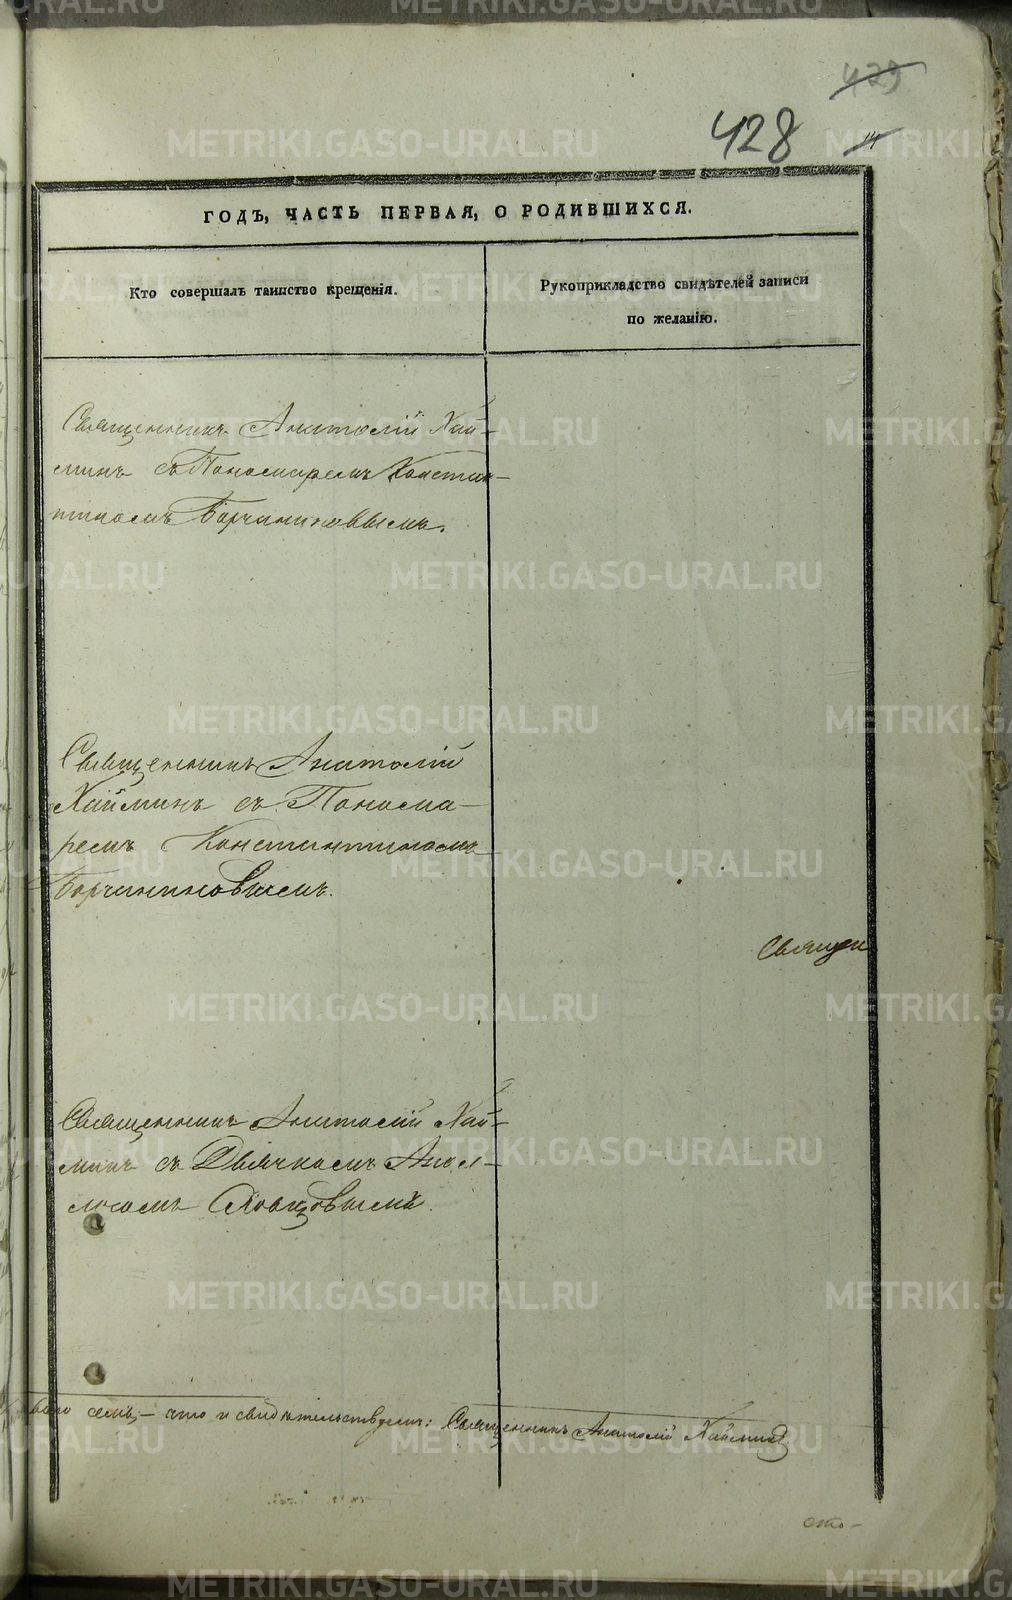 429
428
14
ГОДЪ, ЧАСТЬ ПЕРВАЯ, О РОДИВШИХСЯ.
Кто совершалъ таинство крещенія.
Рукоприкладство свидѣтелей записи
по желанію.
Священникъ Анатолій Хай-
минъ съ Пономаремъ Констан-
тиномъ Борчаниновымъ.
Священникъ Анатолій
Хайминъ съ Понома-
ремъ Константиномъ
Борчаниновымъ.
Священ
Священникъ Анатолій Хай-
минъ съ Дьячкомъ Апол-
лосомъ Словцовымъ.
семь, – что и свидѣтельствуемъ: Священникъ Анатолій Хайминъ
METRIKI.GASO-URAL.RU